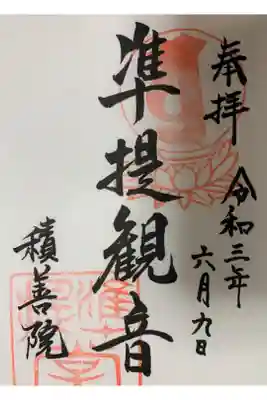 奉拝 令和三年
六月九日
准提観音
積善院